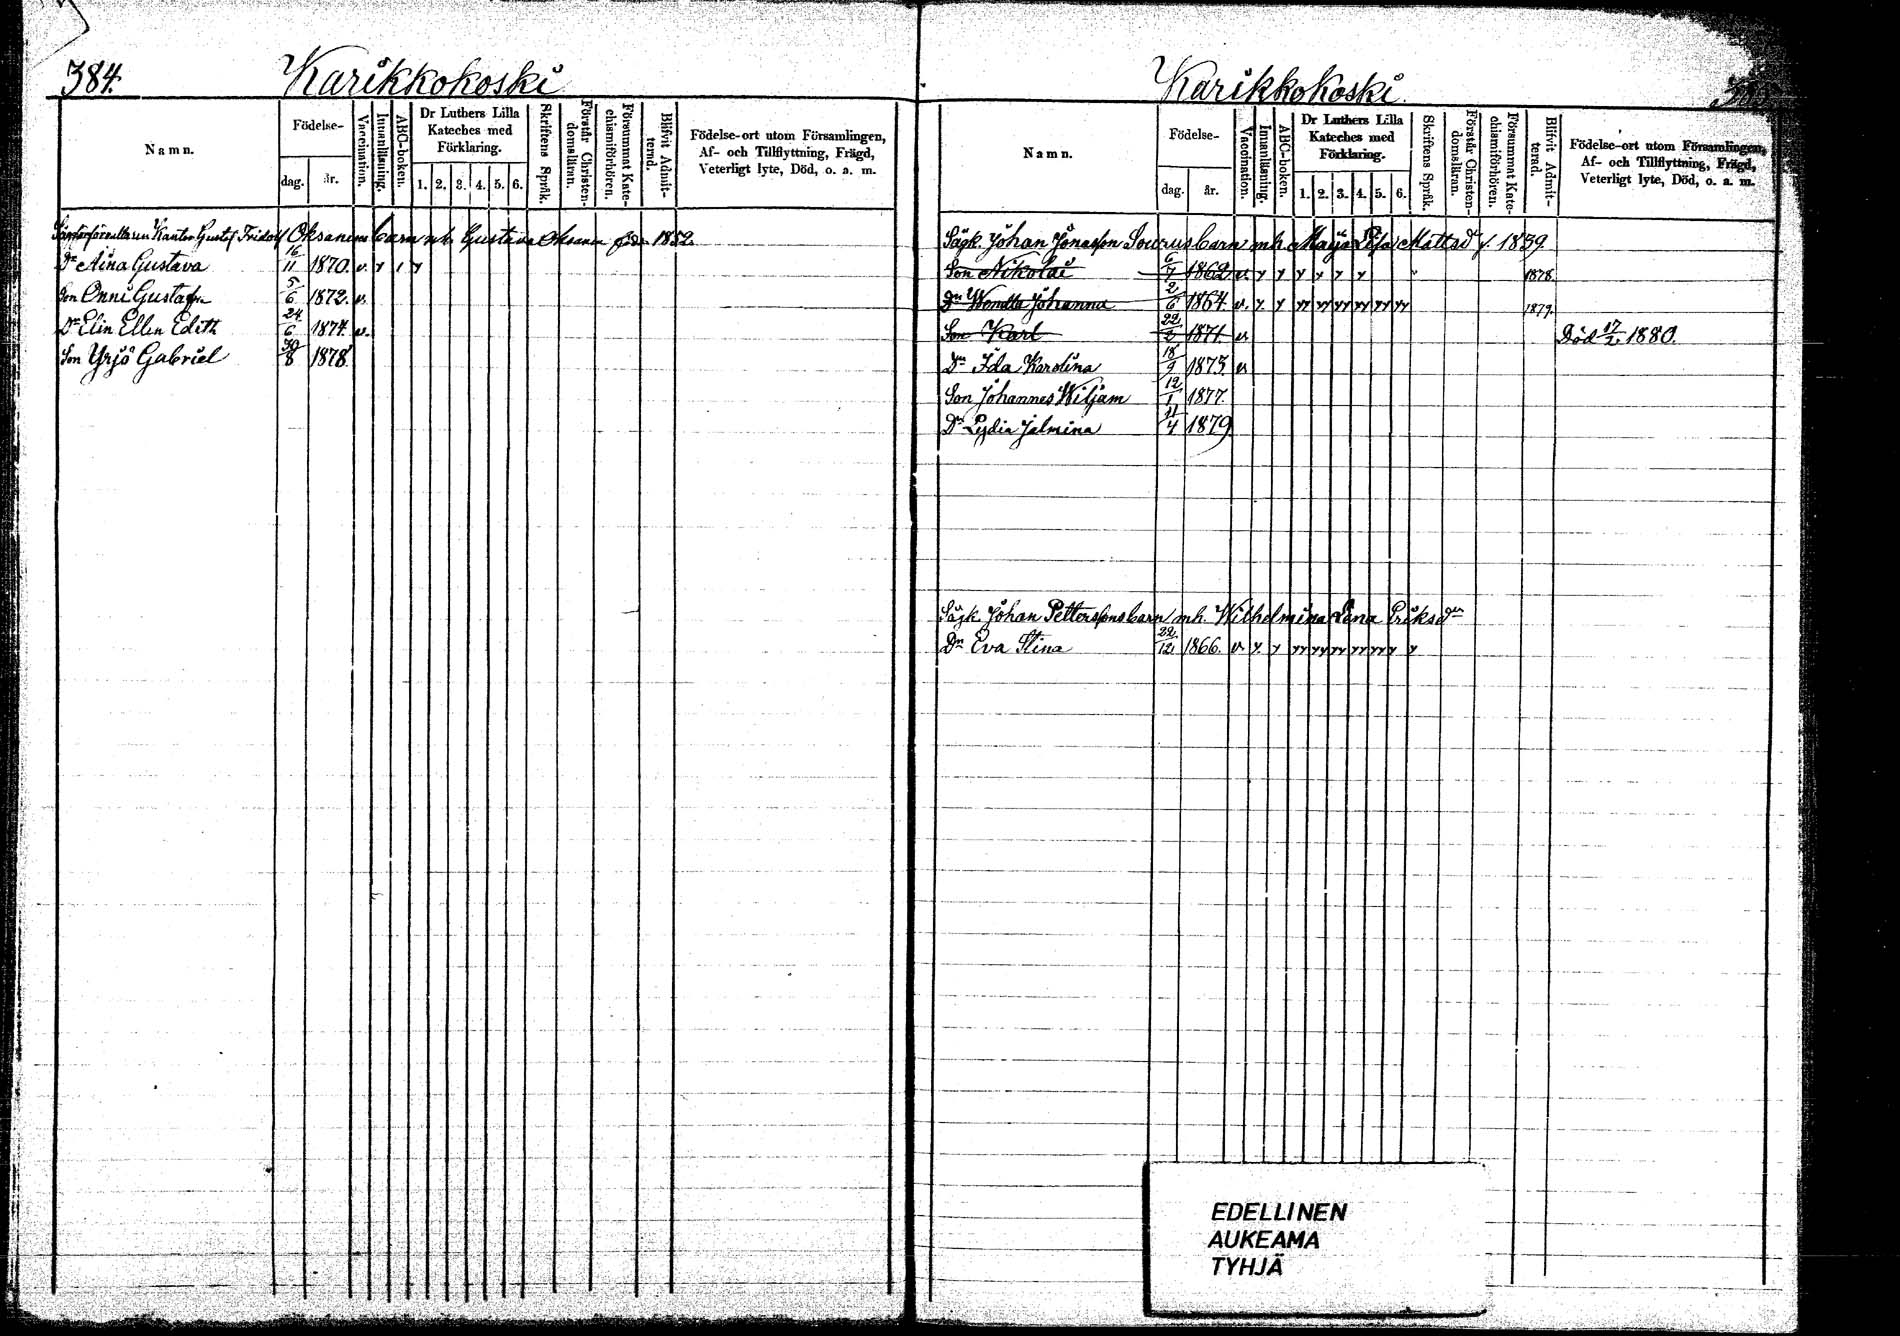 384.
Karikkokoski
Namn.
Födelse-
dag.
år.
Vaccination.
Innanläsning.
ABC-boken.
Dr Luthers Lilla
Kateches med
Förklaring.
1. 2. 3. 4. 5. 6.
Skriftens Språk.
Förstår Christen-
domsläran.
Försummat Kate-
chismiförhören.
Blifvit Admit-
terad.
Födelse-ort utom Församlingen,
Af- och Tillflyttning, Frägd,
Veterligt lyte, Död, o. a. m.
Kantor Gustaf Fridolf Oksanens barn mh. Gustava Oksanen född 1852
Dr Aina Gustava 16/11 1870. v. y 1 y
Son Onni Gustaf 5/6 1872. v.
Dr Elin Ellen Edith 24/6 1874. v.
Son Yrjö Gabriel 30/8 1878
Karikkokoski.
Namn.
Födelse-
dag.
år.
Vaccination.
Innanläsning.
ABC-boken.
Dr Luthers Lilla
Kateches med
Förklaring.
1. 2. 3. 4. 5. 6.
Skriftens Språk.
Förstår Christen-
domsläran.
Försummat Kate-
chismiförhören.
Blifvit Admit-
terad.
Födelse-ort utom Församlingen,
Af- och Tillflyttning, Frägd,
Veterligt lyte, Död, o. a. m.
Sågk. Johan Jonasson Sourus barn mh Maija Lisa Mattsdr f. 1839.
Son Nikolai 6/7 1862 v y y y y y y 1878
Dr Wendla Johanna 2/6 1864. v. y. y yy yy yy yy yy yy 1879.
Son Karl 22/2 1871. v Död 17/2 1880.
Dr Ida Karolina 18/9 1873 v
Son Johannes Wiljam 12/1 1877.
Dr Lydia Jalmina 11/4 1879
Sågk. Johan Petterssons barn mh. Wilhelmina Lena Eriksdr
Dr Eva Stina 22/12 1866. v. y. y yy yy yy yy yy y y
EDELLINEN
AUKEAMA
TYHJÄ